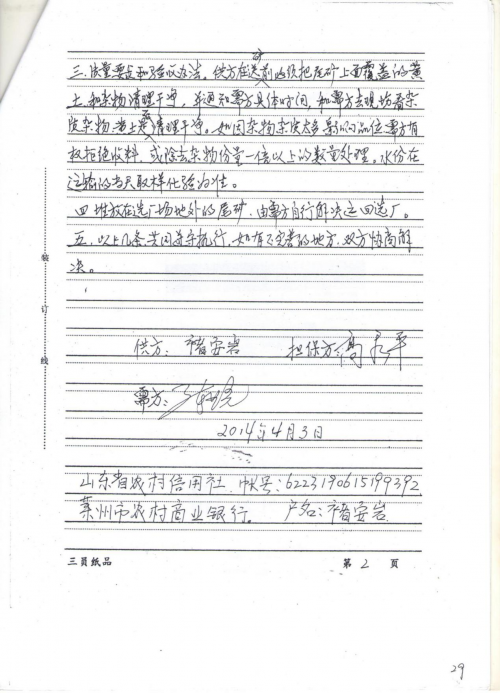 三.质量要点和验收办法。供方在送矿前必须把尾矿上面覆盖的黄
土和杂物清理干净,并通知需方具体时间,和需方去现场看杂
质杂物黄土是否清理干净。如因杂物杂质太多影响品位需方有
权拒绝收料,或除去杂物份量一倍以上的数量处理。水份在
运输的当天取样化验为准。
四.堆放在选厂场地外的尾矿,由需方自行解决运回选厂。
五.以上几条共同遵守执行,如有不完善的地方,双方协商解
决。
装
订
线
供方:褚安岩 担保方:高永平
需方:
2014年4月3日
山东省农村信用社 帐号:6223190615199392
莱州市农村商业银行。 户名:褚安岩
三員纸品 第 2 页
29